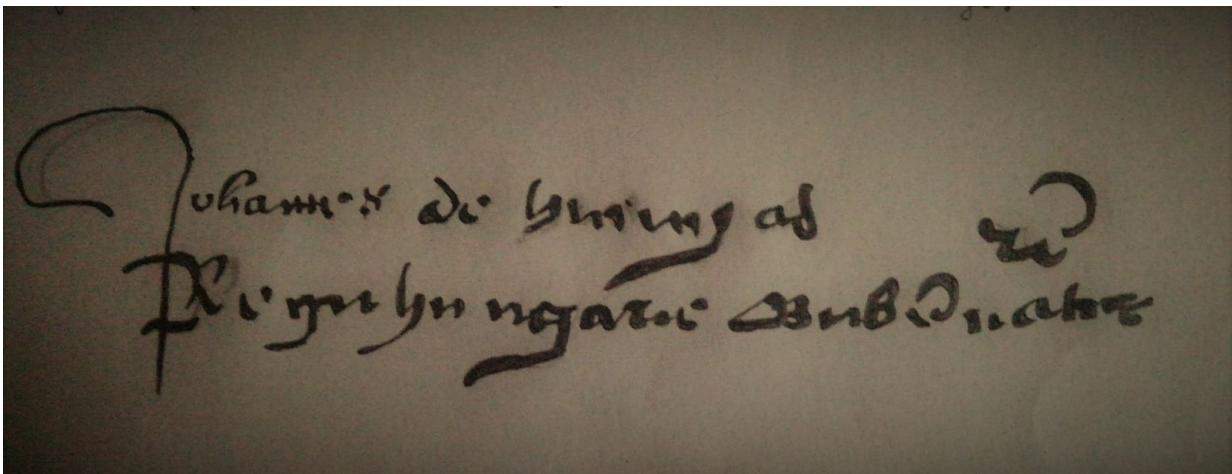 Johannes de hunyad
Regni hungarie Gubernator